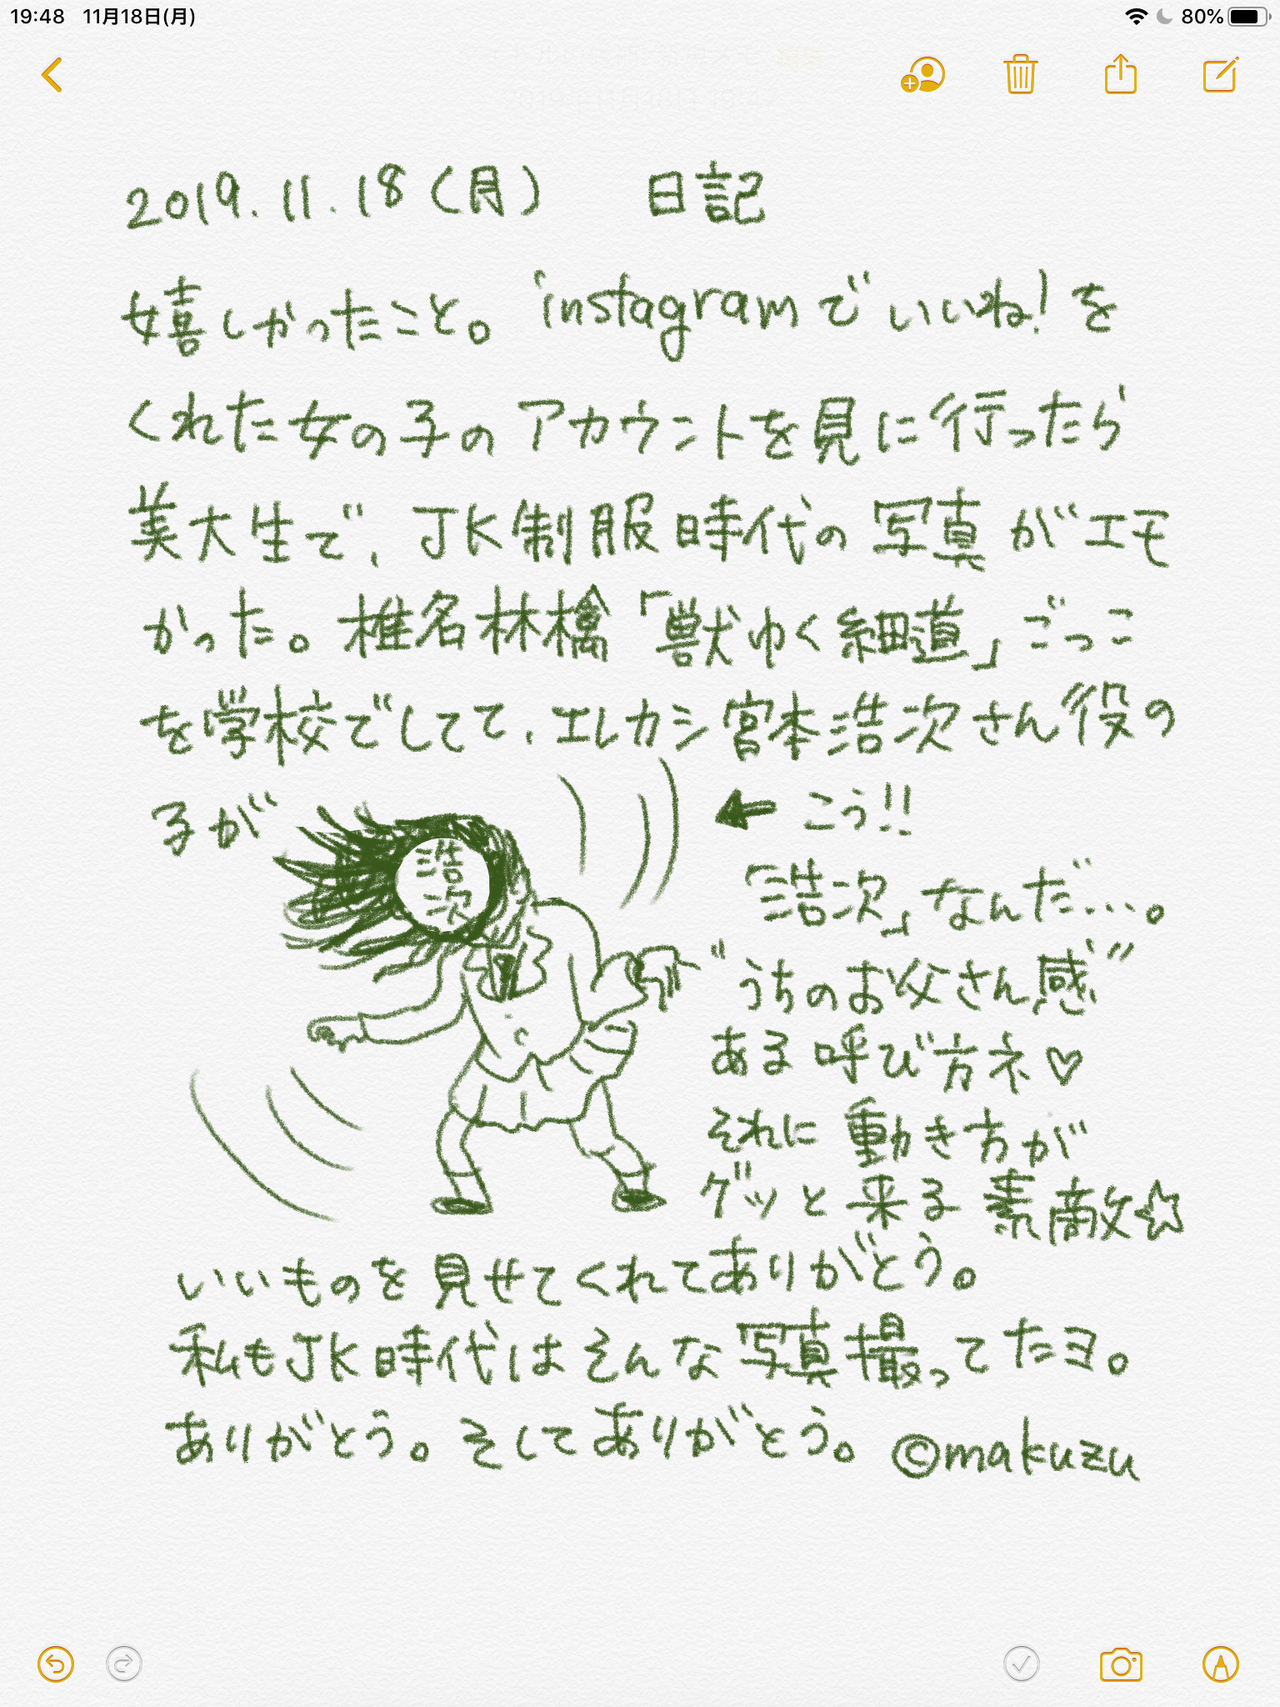 19:48 11月18日(月) 80%
2019.11.18(月) 日記
嬉しかったこと。instagramでいいね!を
くれた女の子のアカウントを見に行ったら
美大生で、JK制服時代の写真がエモ
かった。椎名林檎「獣ゆく細道」ごっこ
を学校でしてて、エレカシ宮本浩次さん役の
子が
浩
次
← こう!!
「浩次」なんだ…。
"うちのお父さん感"
ある呼び方ネ♡
それに動き方が
グッと来る素敵☆
いいものを見せてくれてありがとう。
私もJK時代はそんな写真撮ってたヨ。
ありがとう。そしてありがとう。©makuzu